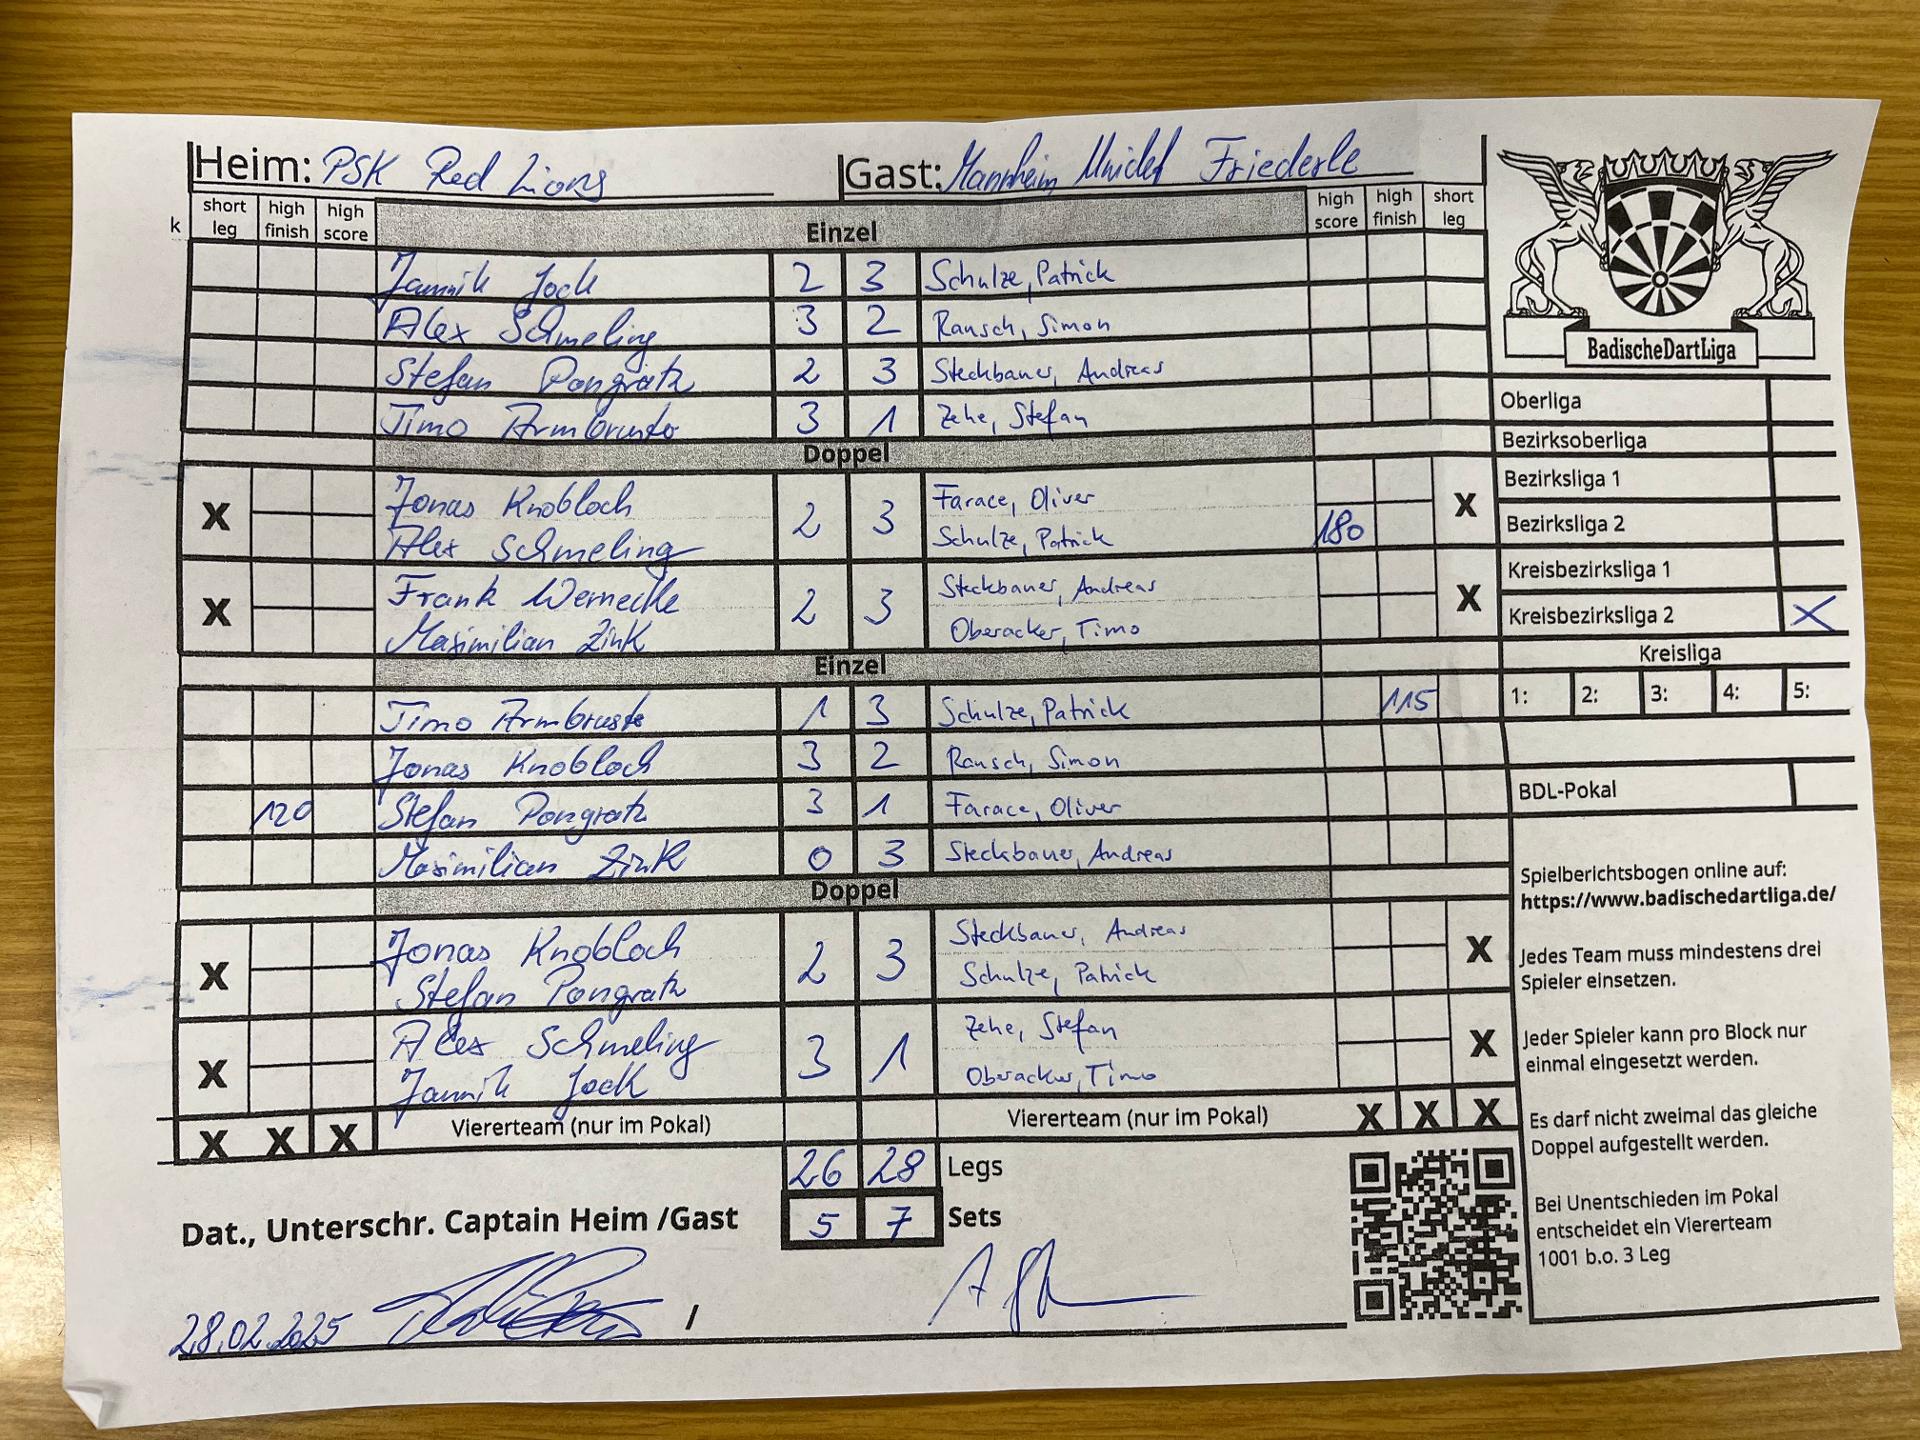 Heim: PSK Red Lions Gast: Mannheim United Friederle
k short leg high finish high score Einzel high score high finish short leg
Jannik Jock 2 3 Schulze, Patrick
Alex Schmeling 3 2 Rausch, Simon
Stefan Pongratz 2 3 Steckbauer, Andreas
Timo Armbruster 3 1 Zehe, Stefan
Doppel
X Jonas Knobloch 2 3 Farace, Oliver X
Alex Schmeling Schulze, Patrick 180
X Frank Wernecke 2 3 Steckbauer, Andreas X
Maximilian Zink Oberacker, Timo
Einzel
Timo Armbruster 1 3 Schulze, Patrick 115
Jonas Knobloch 3 2 Rausch, Simon
120 Stefan Pongratz 3 1 Farace, Oliver
Maximilian Zink 0 3 Steckbauer, Andreas
Doppel
X Jonas Knobloch 2 3 Steckbauer, Andreas X
Stefan Pongratz Schulze, Patrick
X Alex Schmeling 3 1 Zehe, Stefan X
Jannik Jock Oberacker, Timo
X X X Viererteam (nur im Pokal) Viererteam (nur im Pokal) X X X
26 28 Legs
5 7 Sets
Dat., Unterschr. Captain Heim /Gast
28.02.2025 /
BadischeDartLiga
Oberliga
Bezirksoberliga
Bezirksliga 1
Bezirksliga 2
Kreisbezirksliga 1
Kreisbezirksliga 2 X
Kreisliga
1: 2: 3: 4: 5:
BDL-Pokal
Spielberichtsbogen online auf:
https://www.badischedartliga.de/
Jedes Team muss mindestens drei
Spieler einsetzen.
Jeder Spieler kann pro Block nur
einmal eingesetzt werden.
Es darf nicht zweimal das gleiche
Doppel aufgestellt werden.
Bei Unentschieden im Pokal
entscheidet ein Viererteam
1001 b.o. 3 Leg